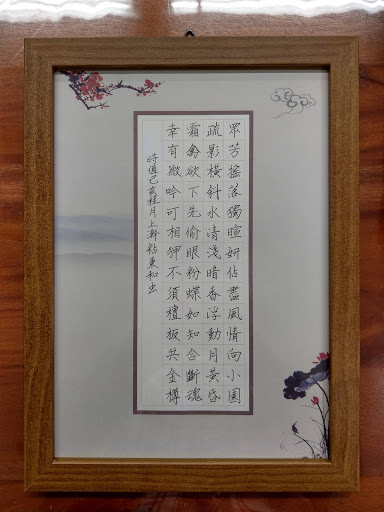 眾芳搖落獨暄妍佔盡風情向小園
疏影橫斜水清淺暗香浮動月黃昏
霜禽欲下先偷眼粉蝶如知合斷魂
幸有微吟可相狎不須檀板共金樽
時值己亥桂月上澣東和